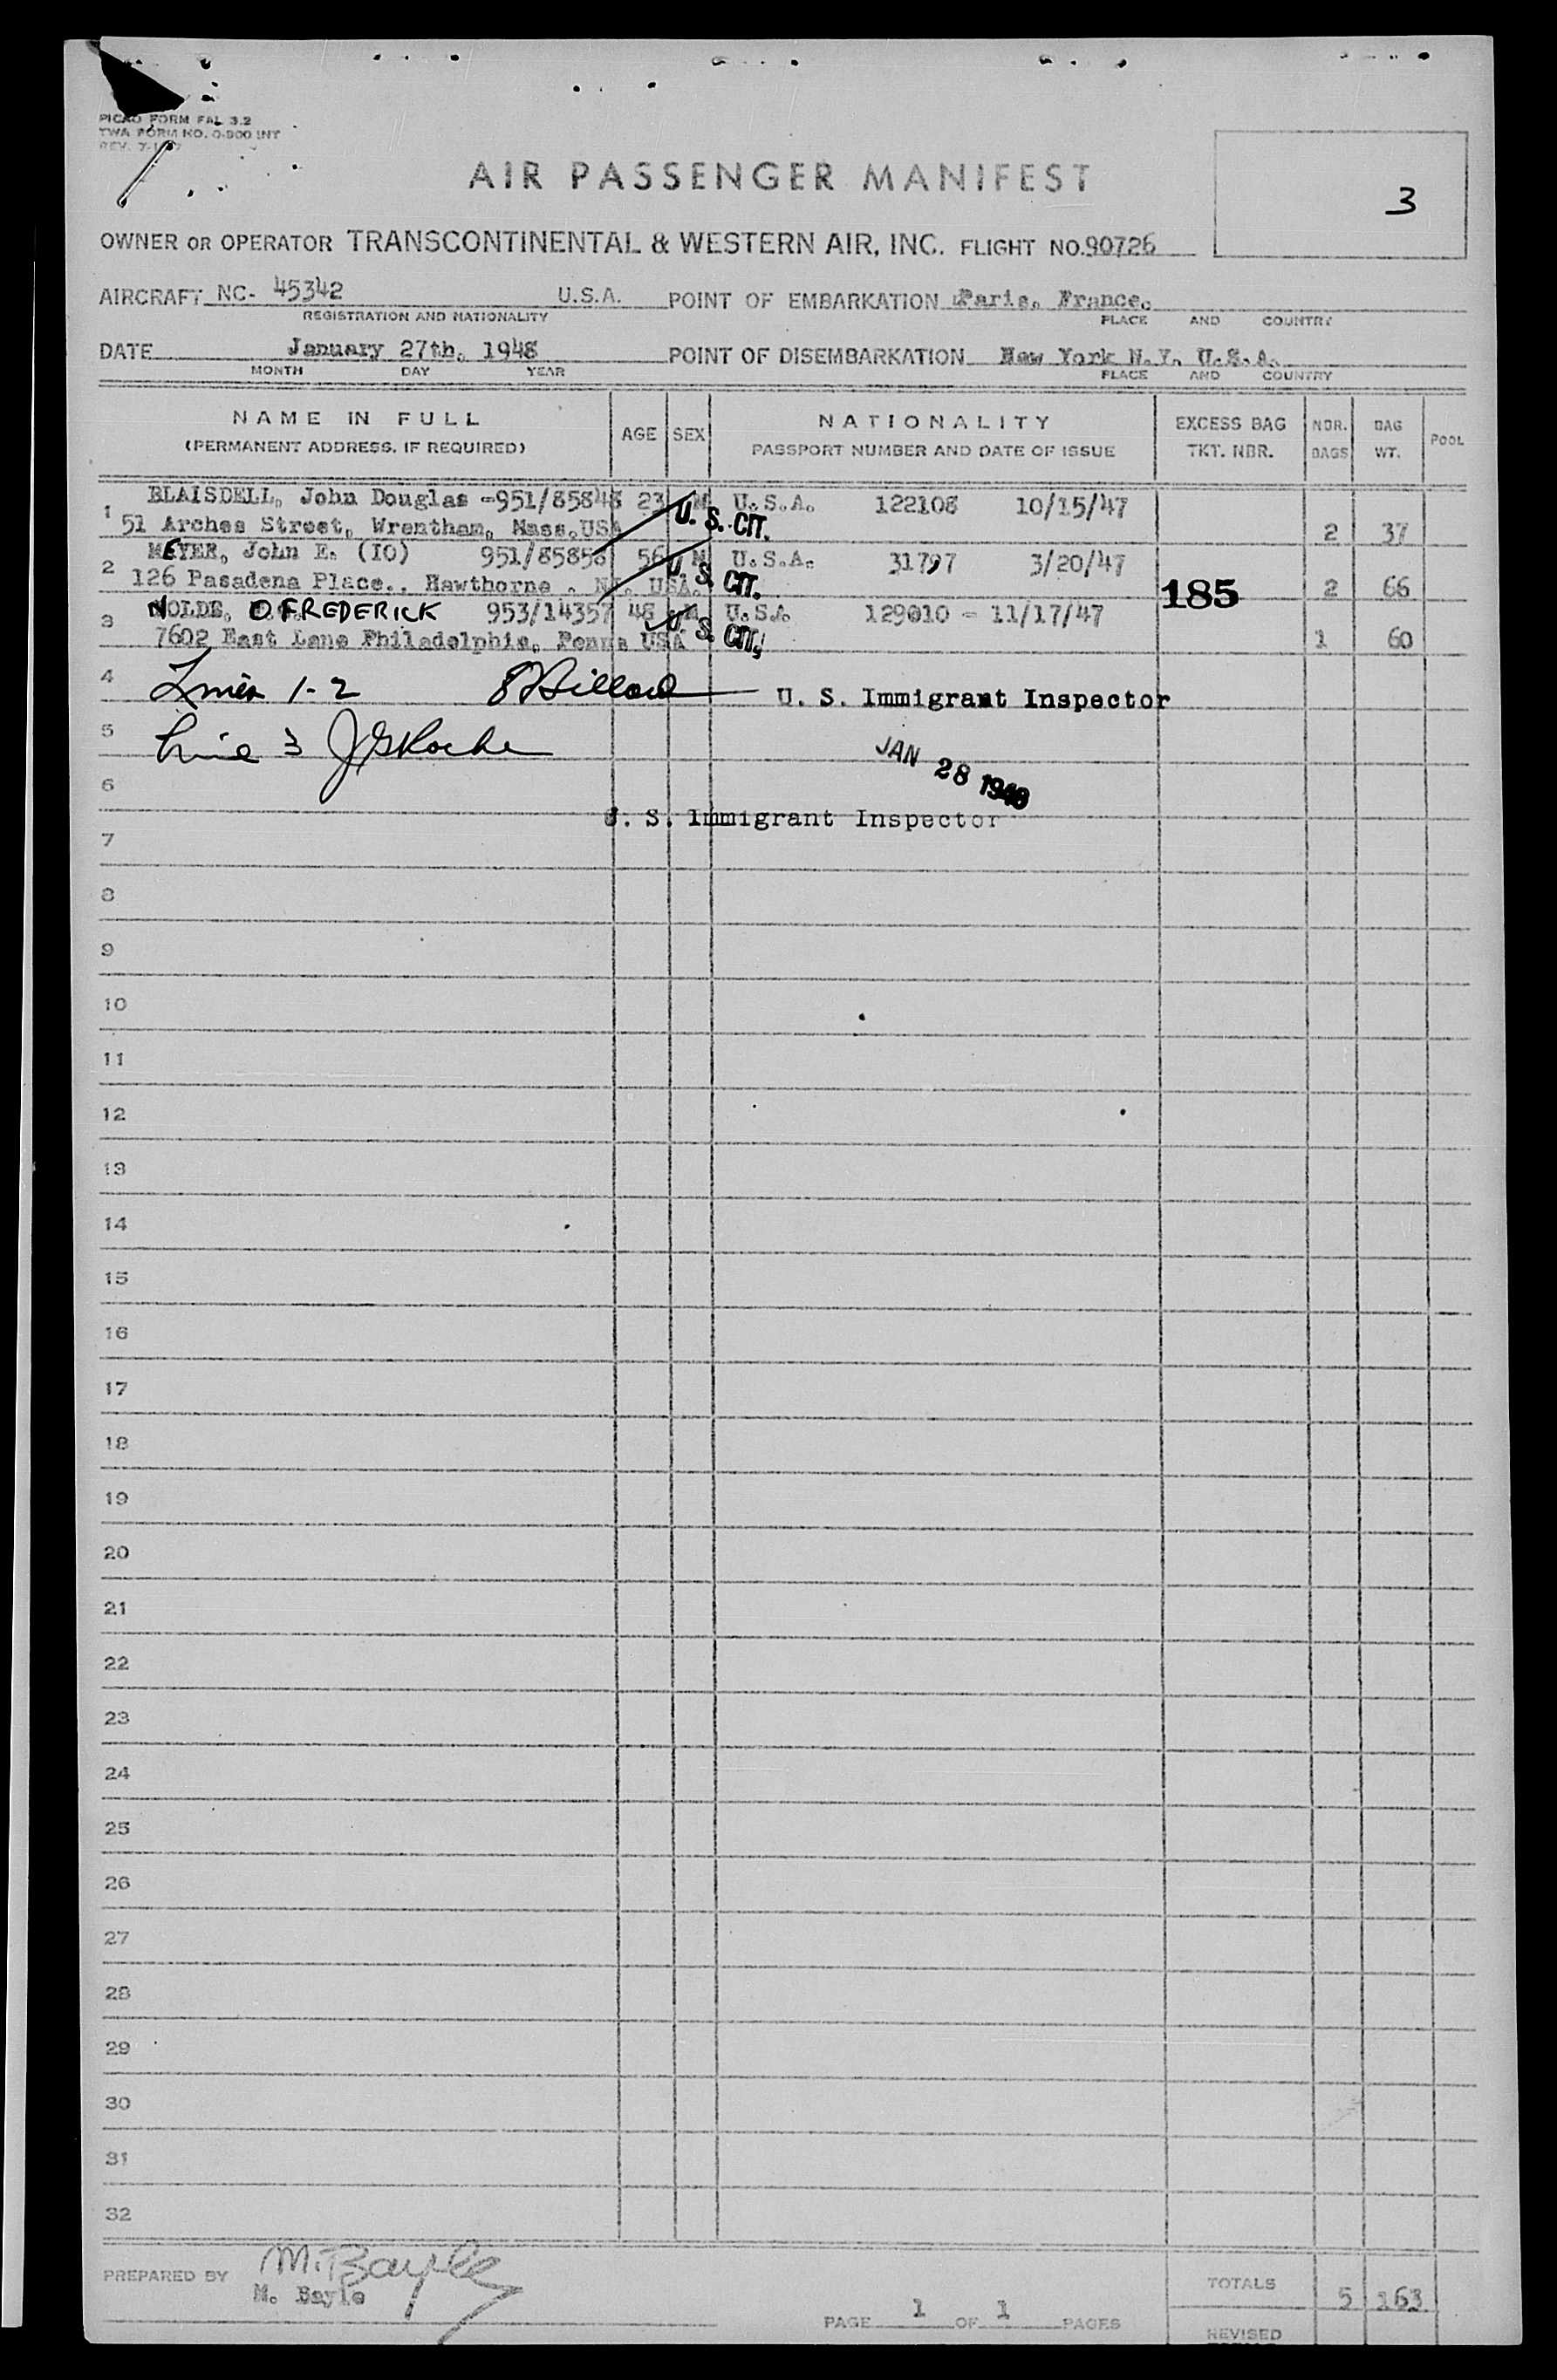 PICAO FORM FAL 3.2
TWA FORM NO. O-800 INT
REV.
AIR PASSENGER MANIFEST
3
OWNER OR OPERATOR TRANSCONTINENTAL & WESTERN AIR, INC. FLIGHT NO. 90726
AIRCRAFT NC- 45342 U.S.A. POINT OF EMBARKATION Paris, France.
REGISTRATION AND NATIONALITY PLACE AND COUNTRY
DATE January 27th, 1948 POINT OF DISEMBARKATION New York N.Y. U.S.A.
MONTH DAY YEAR PLACE AND COUNTRY
NAME IN FULL (PERMANENT ADDRESS, IF REQUIRED) AGE SEX NATIONALITY PASSPORT NUMBER AND DATE OF ISSUE EXCESS BAG TKT. NBR. NBR. BAGS BAG WT. POOL
1 BLAISDELL, John Douglas -951/85848 23 M U.S.A. 122108 10/15/47
51 Arches Street, Wrentham, Mass.USA U. S. CIT. 2 37
2 MEYER, John E. (IO) 951/85858 56 M U.S.A. 31797 3/20/47
126 Pasadena Place., Hawthorne . NJ. USA. U. S. CIT. 185 2 66
3 NOLDE, O FREDERICK 953/14357 48 M U.S.A. 129010 - 11/17/47
7602 East Lane Philadelphia, Penna USA U. S. CIT. 1 60
4 Lines 1-2 U. S. Immigrant Inspector
5 Line 3 J G Roche
JAN 28 1948
6
U. S. Immigrant Inspector
7
8
9
10
11
12
13
14
15
16
17
18
19
20
21
22
23
24
25
26
27
28
29
30
31
32
PREPARED BY M. Bayle
M. Bayle
TOTALS 5 163
PAGE 1 OF 1 PAGES
REVISED